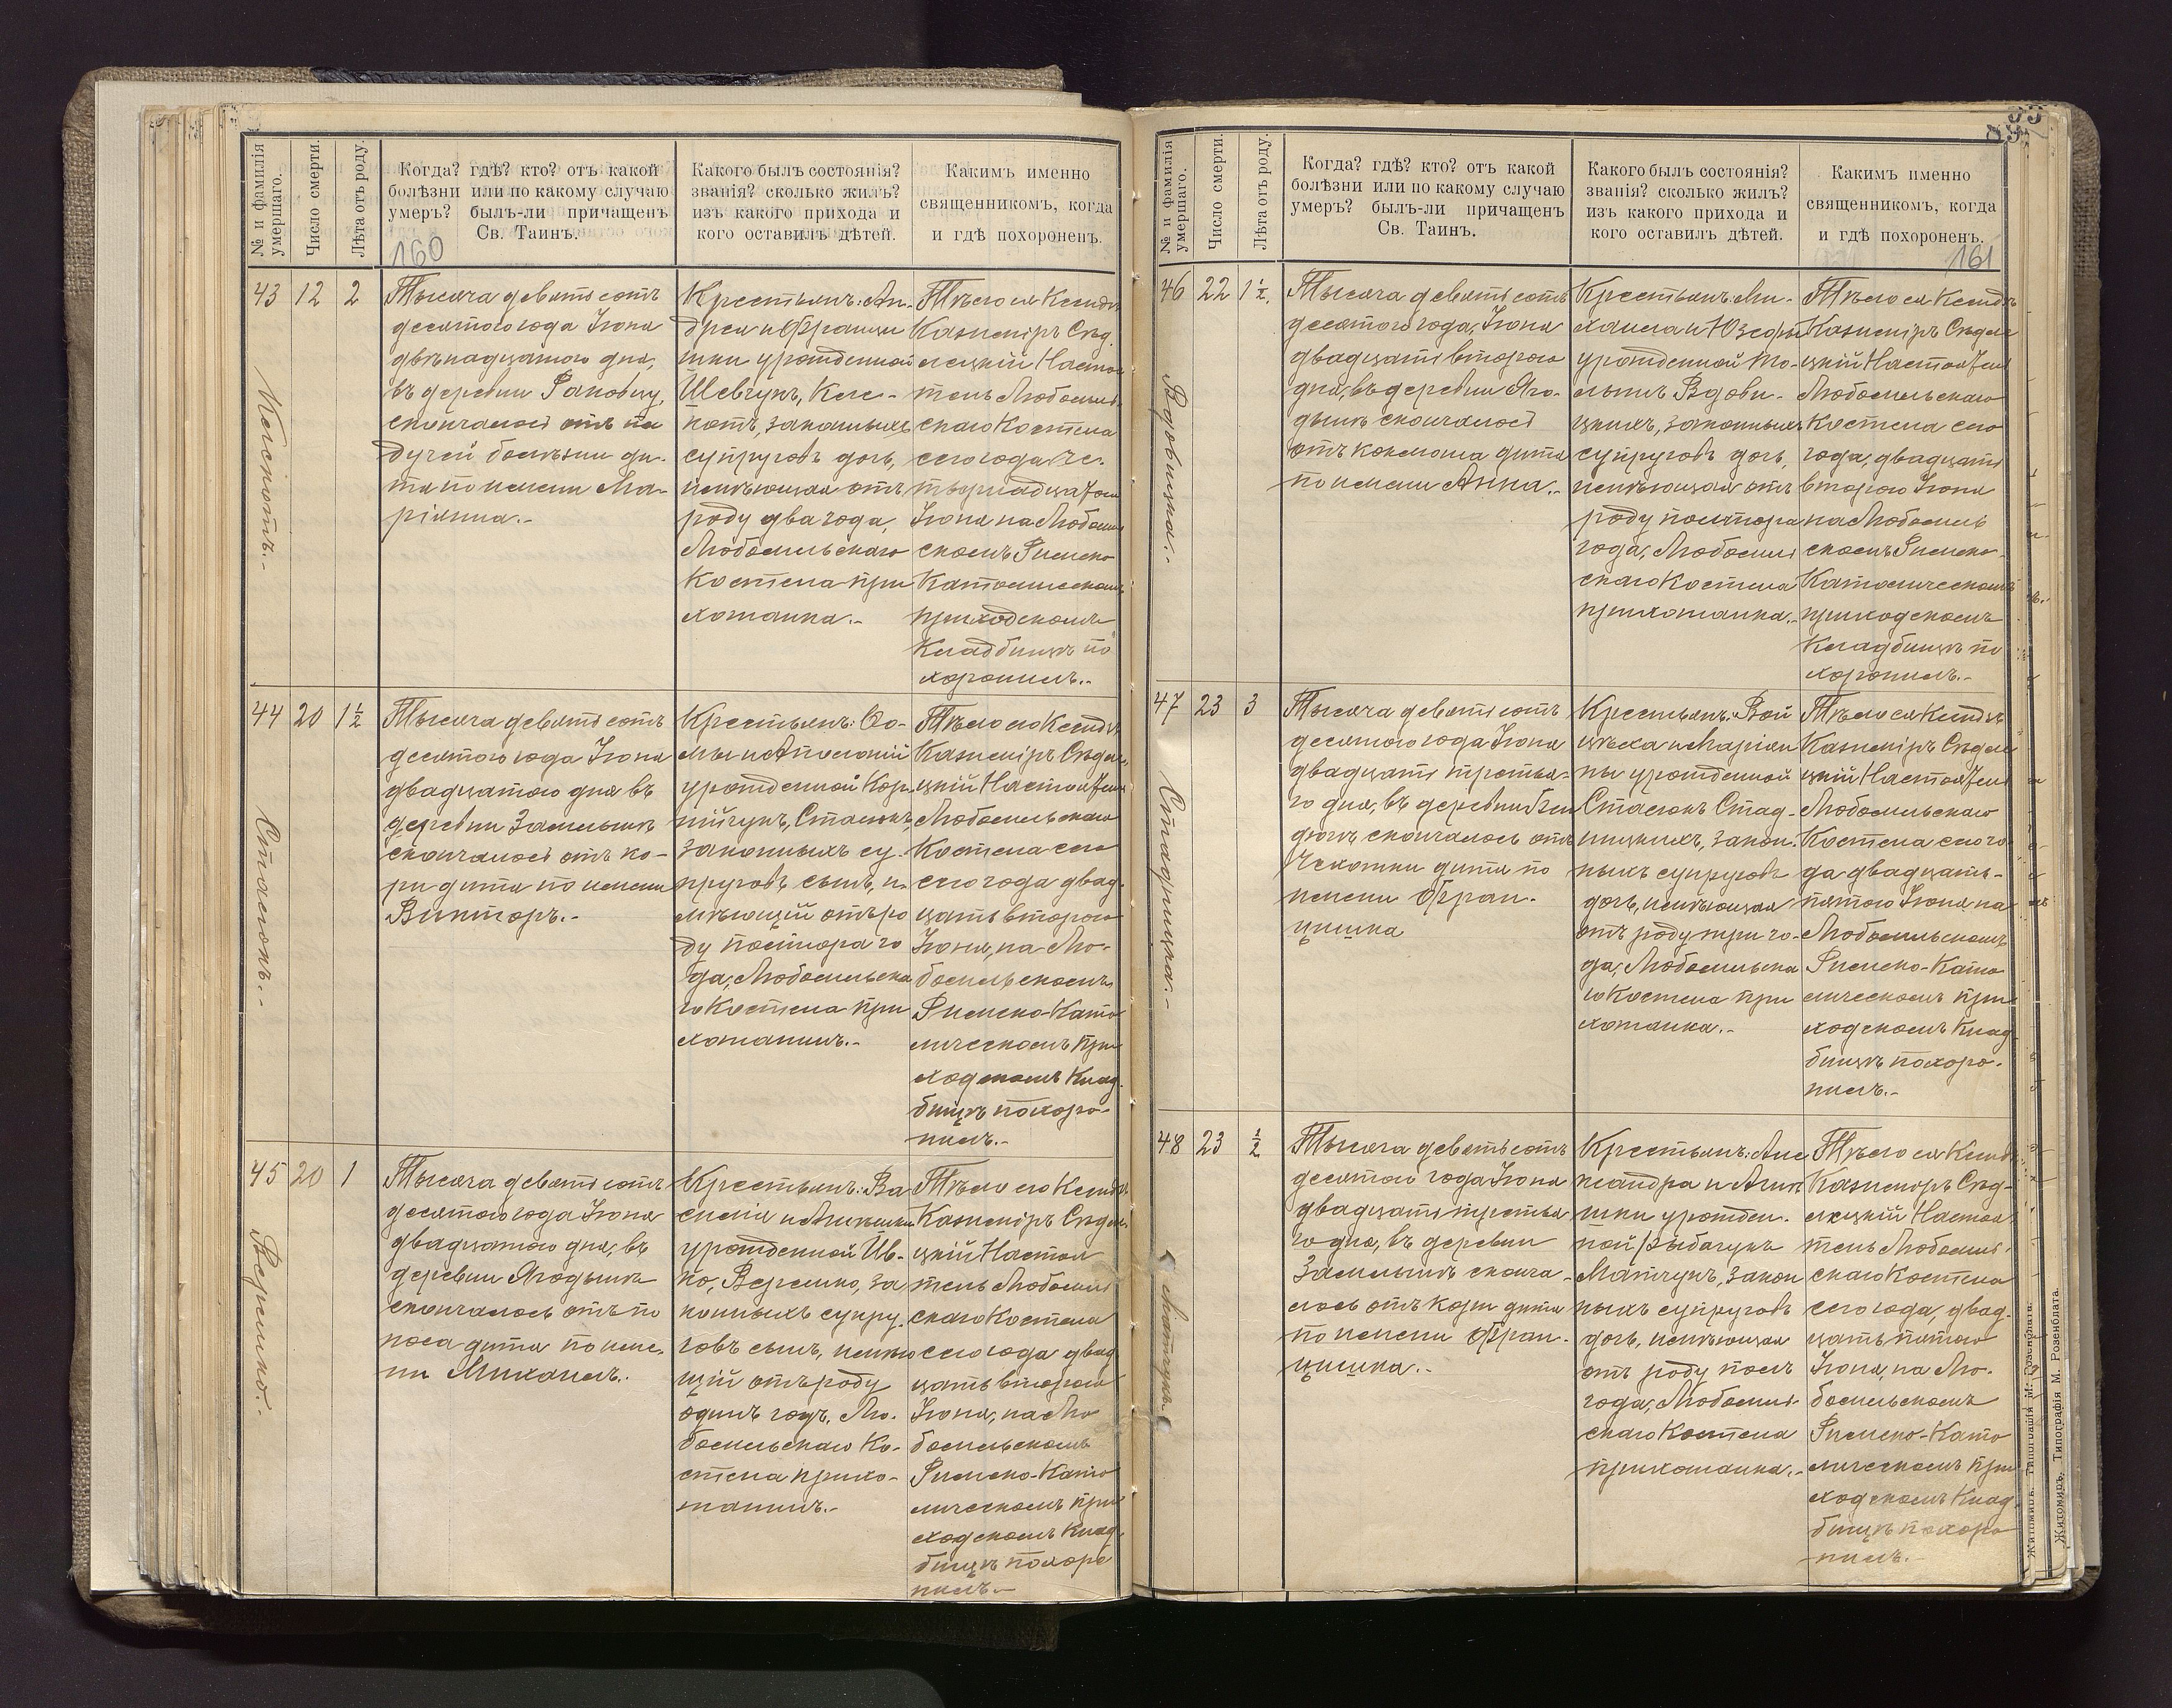 № и фамилія умершаго.
Число смерти.
Лѣта отъ роду.
Когда? гдѣ? кто? отъ какой
болѣзни или по какому случаю
умеръ? былъ-ли причащенъ
Св. Таинъ.
160
Какого былъ состоянія?
званія? сколько жилъ?
изъ какого прихода и
кого оставилъ дѣтей.
Какимъ именно
священникомъ, когда
и гдѣ похороненъ.
43 12 2
Тысяча девятьсотъ
десятого года Іюня
двѣнадцатого дня,
въ деревни
скончалось отъ па
дучей болѣзни ди-
тя по имени Ма-
ріанна.-
Крестьянъ: Ан-
дрея и Франци
шки урожденной
Шевчукъ,
законныхъ
супруговъ дочь,
имѣющая отъ
роду два года,
Любомльскаго
Костела при
хожанка.-
Тѣло ея Ксендзъ
Казимiръ Сѣд-
лецкій Настоя
тель Любомль-
скаго Костела
сего года че-
тырнадцатого
Іюня на Любомль
скомъ Римско
Католическомъ
приходскомъ
Кладбищѣ по
хоронилъ.-
44 20 1½
Столюкъ.-
Тысяча девятьсотъ
десятого года Іюня
двадцатого дня въ
деревни Замлынѣ
скончалось отъ ко-
ри дитя по имени
Викторъ.-
Крестьянъ: Ѳо-
мы и Аполоніи
урожденной Кор
нійчукъ, Столюкъ,
законныхъ су-
пруговъ сынъ, и-
мѣющій отъ ро
ду полтора го
да, Любомльска
го Костела при
хожанинъ.-
Тѣло его Ксендзъ
Казимiръ Сѣдле
цкій Настоятель
Любомльскаго
Костела сего
сего года двад-
цать второго
Іюня, на Лю-
бомльскомъ
Римско-Като
лическомъ при
ходскомъ Клад-
бищѣ похоро-
нилъ.-
45 20 1
Веремко.-
Тысяча девятьсотъ
десятого года Іюня
двадцатого дня, въ
деревни Ягодынѣ
скончалось отъ по
носа дитя по име-
ни Михаилъ.-
Крестьянъ: Ва
силія и
урожденной Ив-
ко, Веремко, за
конныхъ супру-
говъ сынъ, имѣю
щій отъ роду
одинъ годъ, Лю-
бомльскаго Ко-
стела прихо-
жанинъ.-
Тѣло его Ксендзъ
Казимiръ Сѣдле
цкій Настоя
тель Любомль
скаго Костела
сего года двад
цать второго
Іюня, на Лю
бомльскомъ
Римско-Като
лическомъ при
ходскомъ Клад-
бищѣ похоро
нилъ.-
№ и фамилія умершаго.
Число смерти.
Лѣта отъ роду.
Когда? гдѣ? кто? отъ какой
болѣзни или по какому случаю
умеръ? былъ-ли причащенъ
Св. Таинъ.
Какого былъ состоянія?
званія? сколько жилъ?
изъ какого прихода и
кого оставилъ дѣтей.
Какимъ именно
священникомъ, когда
и гдѣ похороненъ.
161
46 22 1½
Вдовицка.-
Тысяча девятьсотъ
десятого года, Іюня
двадцать второго
дня, въ деревни Яго-
дынѣ скончалось
отъ коклюша дитя
по имени Анна.-
Крестьянъ: Ми-
хаила и Юзефы
урожденной
Вдови-
цкихъ, законныхъ
супруговъ дочь,
имѣющая отъ
роду полтора
года, Любомль
скаго Костела
прихожанка.-
Тѣло ея Ксендзъ
Казимiръ Сѣдле
цкій Настоятель
Любомльскаго
Костела сего
года, двадцать
второго Іюня
на Любомль
скомъ Римско
Католическомъ
приходскомъ
Кладбищѣ по
хоронилъ.-
47 23 3
Стадницка.-
Тысяча девятьсотъ
десятого года Іюня
двадцать третья-
го дня, въ деревни
скончалось отъ
Чахотки дитя по
имени Фран-
цишка
Крестьянъ: Вой
цѣха и Маріан
ны урожденной
Столюкъ Стад-
ницкихъ, закон-
ныхъ супруговъ
дочь, имѣющая
отъ роду три го-
да, Любомльска
го Костела при
хожанка.-
Тѣло ея Ксендзъ
Казимiръ Сѣдле
цкій Настоятель
Любомльскаго
Костела сего го
да двадцать-
пятого Іюня на
Любомльскомъ
Римско-Като
лическомъ при
ходскомъ Клад
бищѣ похоро-
нилъ.-
48 23 ½
Матчукъ.
Тысяча девятьсотъ
десятого года Іюня
двадцать третья
го дня, въ деревни
Замлынѣ сконча-
лось отъ кори дитя
по имени Фран-
цишка.-
Крестьянъ: Але
ксандра и
урожден-
ной Рыбачукъ
Матчукъ, закон
ныхъ супруговъ
дочь, имѣющая
отъ роду полъ
года, Любомль-
скаго Костела
прихожанка.-
Тѣло ея Ксендзъ
Казимiръ Сѣд-
лецкій Настоя
тель Любомль-
скаго Костела
сего года, двад-
цать пятого
Іюня, на Лю-
бомльскомъ
Римско-Като
лическомъ при
ходскомъ Клад-
бищѣ похоро
нилъ.-
Житомиръ. Типографія М. Розенблата.